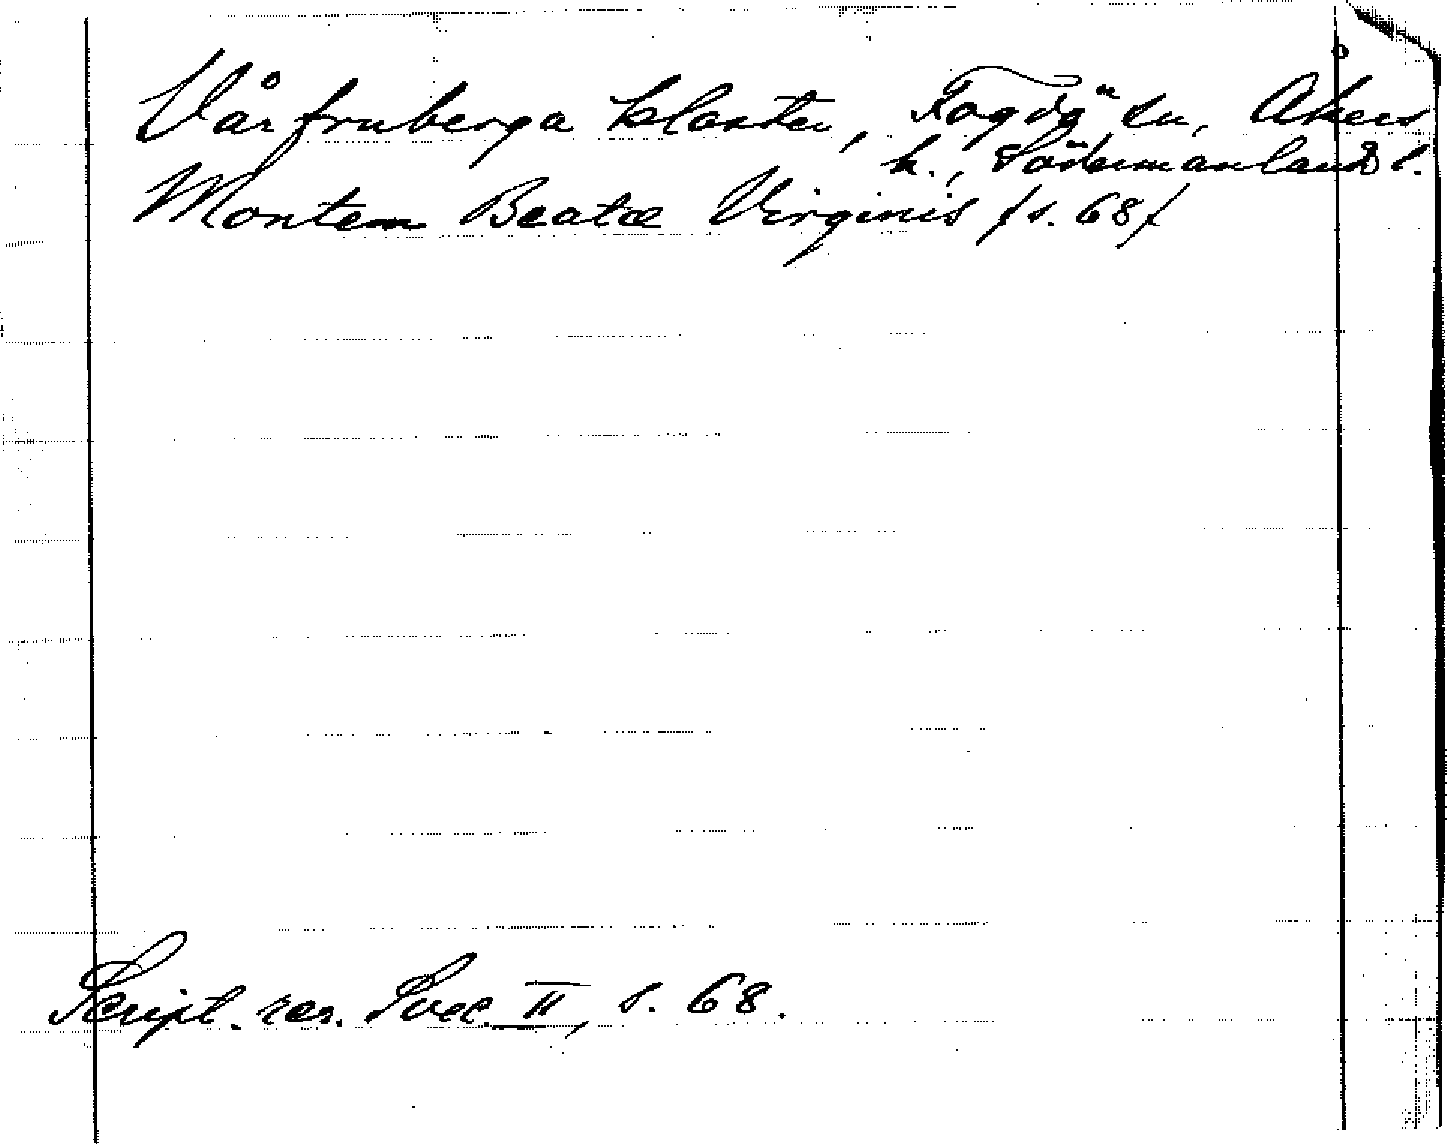 Vårfruberga kloster, Fogdö sn, Åkers
h., Södermanlands l.
Montem Beatæ Virginis /s. 68/
Script. rer. Svec. II, s. 68.